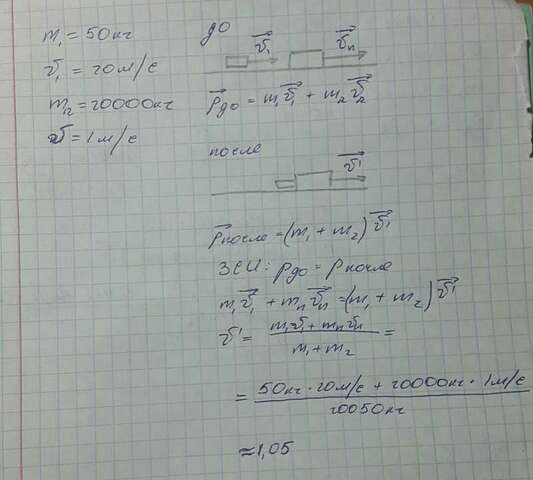 m₁ = 50кг
v₁ = 20м/с
m₂ = 20000кг
v = 1м/с
до
v⃗₁ v⃗п
p⃗до = m₁v⃗₁ + m₂v⃗₂
после
v⃗'
p⃗после = (m₁ + m₂)v⃗'
ЗСИ: pдо = pпосле
m₁v⃗₁ + mпv⃗п = (m₁ + m₂)v⃗'
v' = (m₁v₁ + mпvп)/(m₁ + m₂) =
= (50кг · 20м/с + 20000кг · 1м/с)/20050кг
≈ 1,05